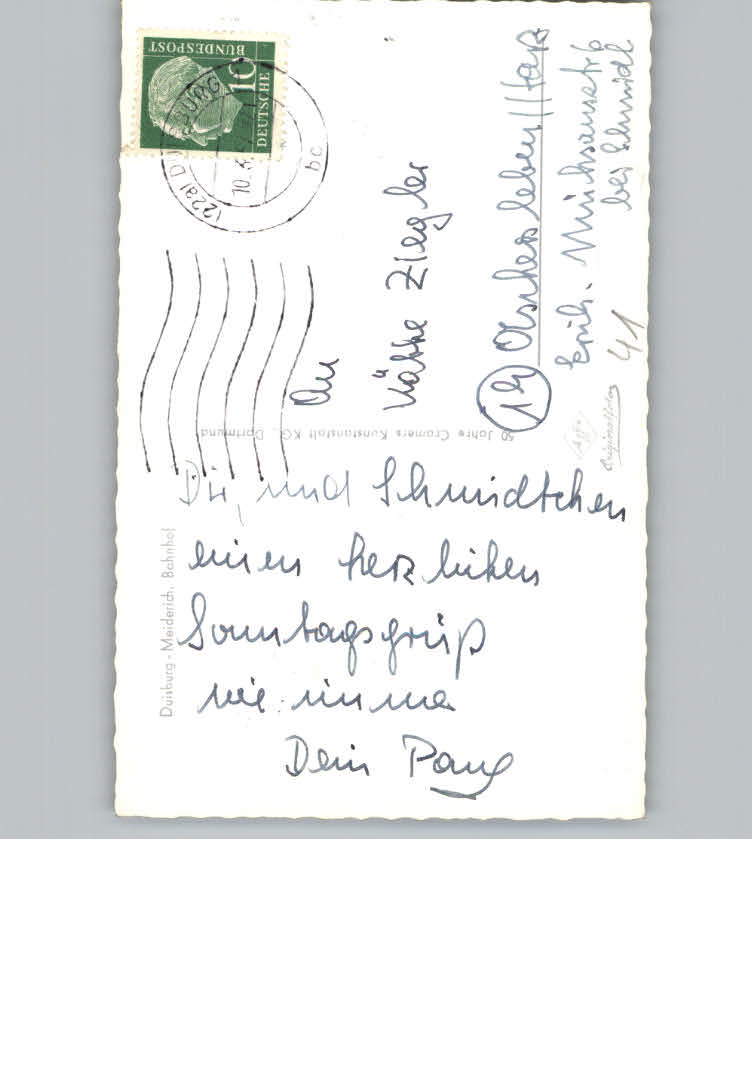 Dir, und Schmidtchen
einen herzlichen
Sonntagsgruß
wie immer
Dein Paul
An
Käthe Ziegler
(19) Aschersleben // Harz
Erich-Mühsamstr 6
bei Schmidt
41
Duisburg-Meiderich, Bahnhof
50 Jahre Cramers Kunstanstalt KG., Dortmund
Agfa
Originalfoto
DEUTSCHE
BUNDESPOST
10
(22a) DUISBURG
bc